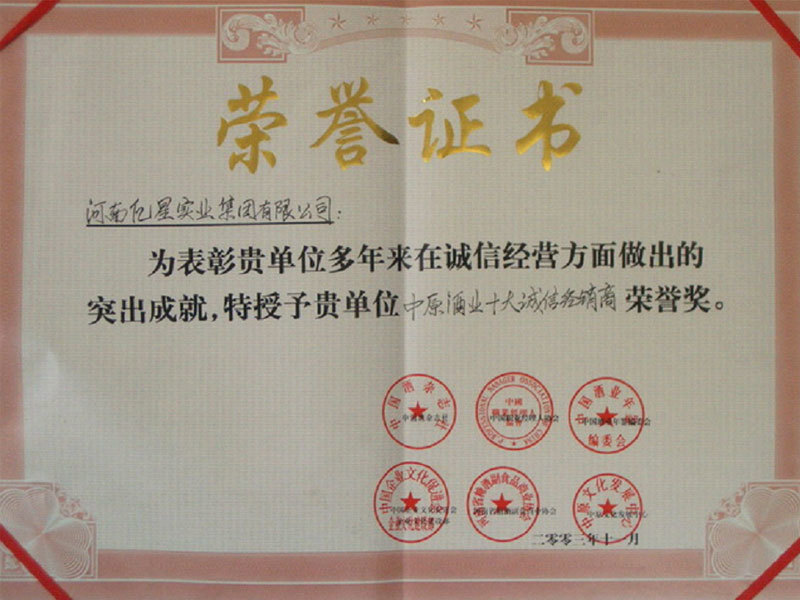 荣誉证书
河南亿星实业集团有限公司:
为表彰贵单位多年来在诚信经营方面做出的
突出成就,特授予贵单位中原酒业十大诚信经销商荣誉奖。
中国酒杂志社
中国酒业年鉴编委会
中国企业文化促进会
河南省糖酒副食品商业协会
中原文化发展中心
二〇〇三年十一月